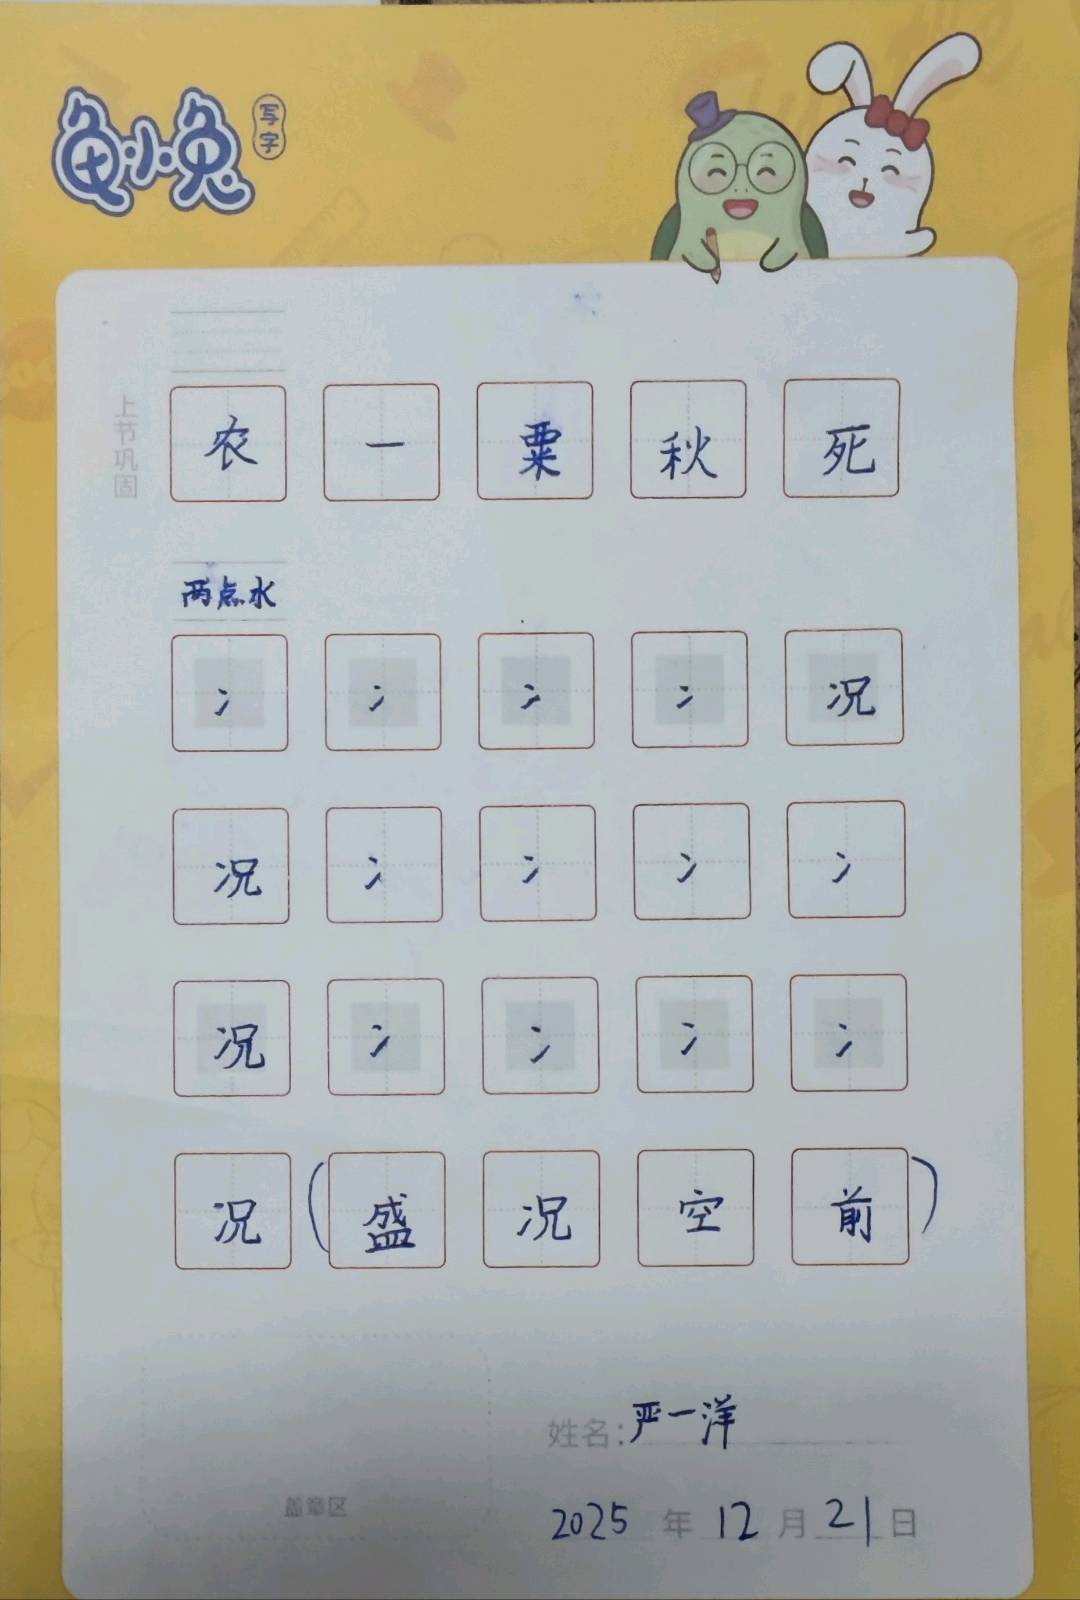 龟小兔 写字
上节巩固
农 一 粟 秋 死
两点水
冫 冫 冫 冫 况
况 冫 冫 冫 冫
况 冫 冫 冫 冫
况 (盛 况 空 前)
姓名:严一洋
盖章区
2025 年 12 月 21 日